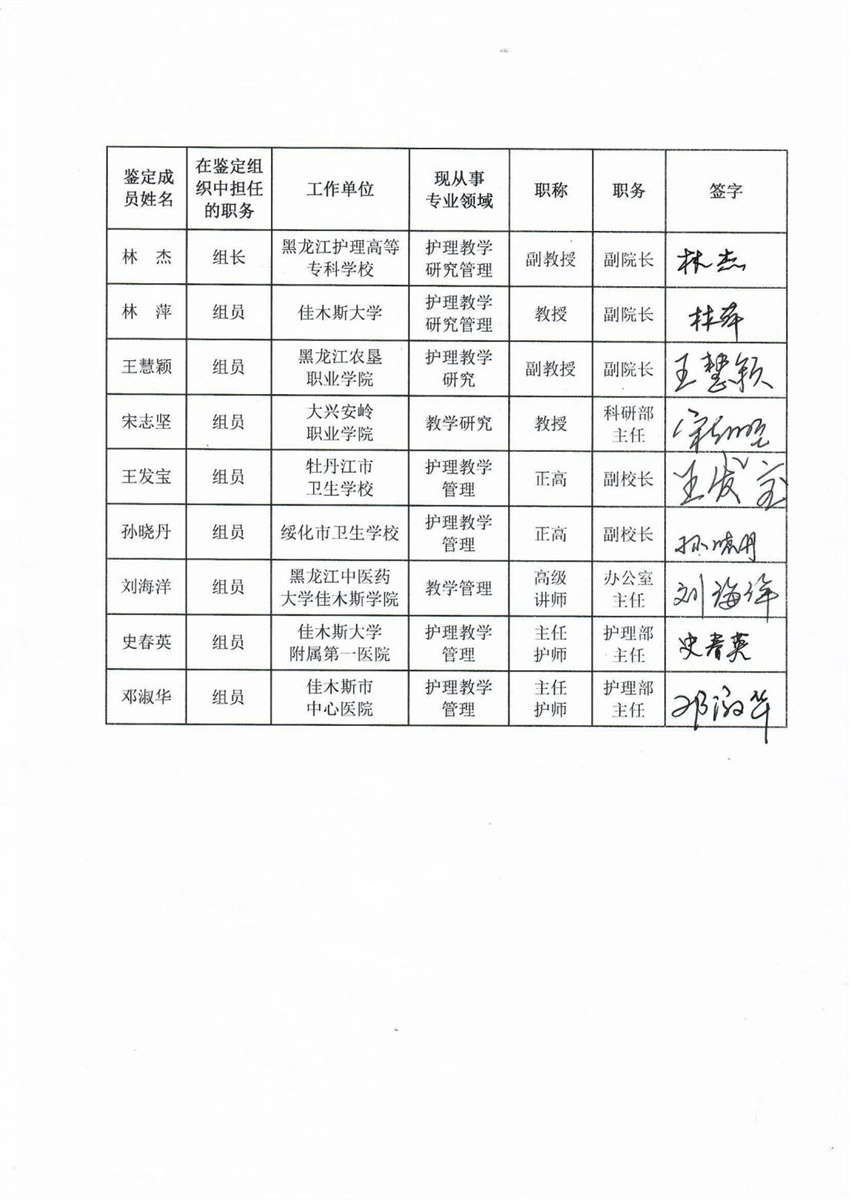 鉴定成员姓名 在鉴定组织中担任的职务 工作单位 现从事专业领域 职称 职务 签字
林 杰 组长 黑龙江护理高等专科学校 护理教学研究管理 副教授 副院长 林杰
林 萍 组员 佳木斯大学 护理教学研究管理 教授 副院长 林萍
王慧颖 组员 黑龙江农垦职业学院 护理教学研究 副教授 副院长 王慧颖
宋志坚 组员 大兴安岭职业学院 教学研究 教授 科研部主任
王发宝 组员 牡丹江市卫生学校 护理教学管理 正高 副校长 王发宝
孙晓丹 组员 绥化市卫生学校 护理教学管理 正高 副校长 孙晓丹
刘海洋 组员 黑龙江中医药大学佳木斯学院 教学管理 高级讲师 办公室主任 刘海洋
史春英 组员 佳木斯大学附属第一医院 护理教学管理 主任护师 护理部主任 史春英
邓淑华 组员 佳木斯市中心医院 护理教学管理 主任护师 护理部主任 邓淑华